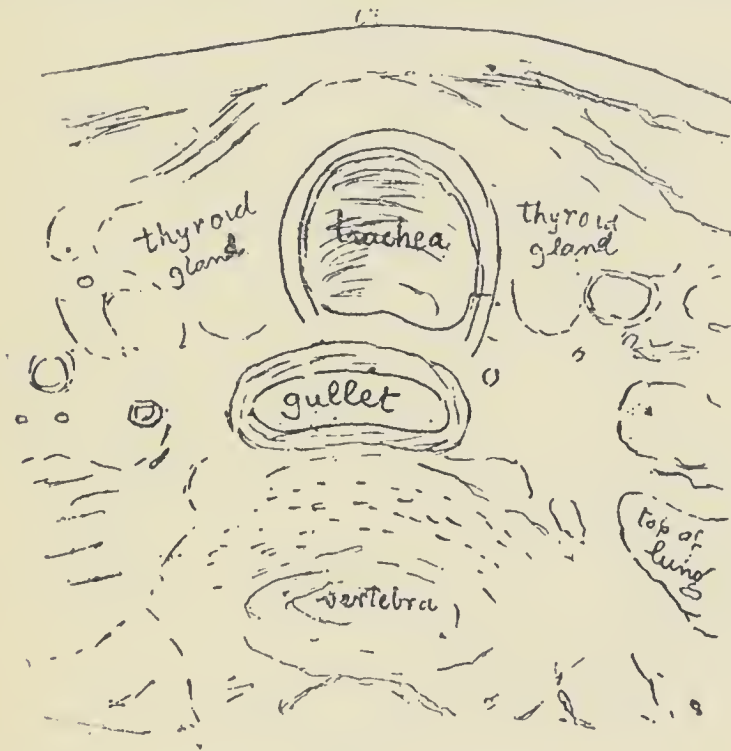 thyroid
gland
trachea
thyroid
gland
gullet
top of
lung
vertebra